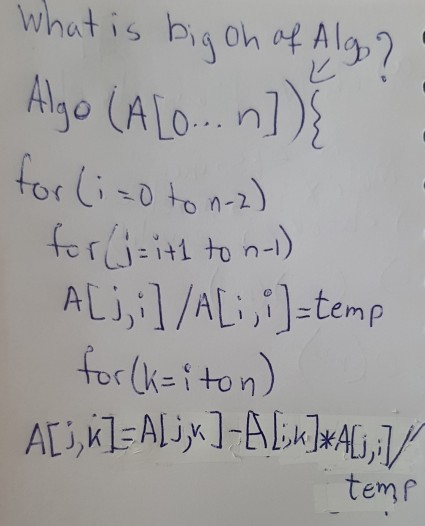 What is big Oh of Algo?
Algo (A[0...n]){
for(i=0 to n-2)
for(j=i+1 to n-1)
A[j,i]/A[i,i]=temp
for(k=i to n)
A[j,k]=A[j,k]-A[i,k]*A[j,i]/
temp